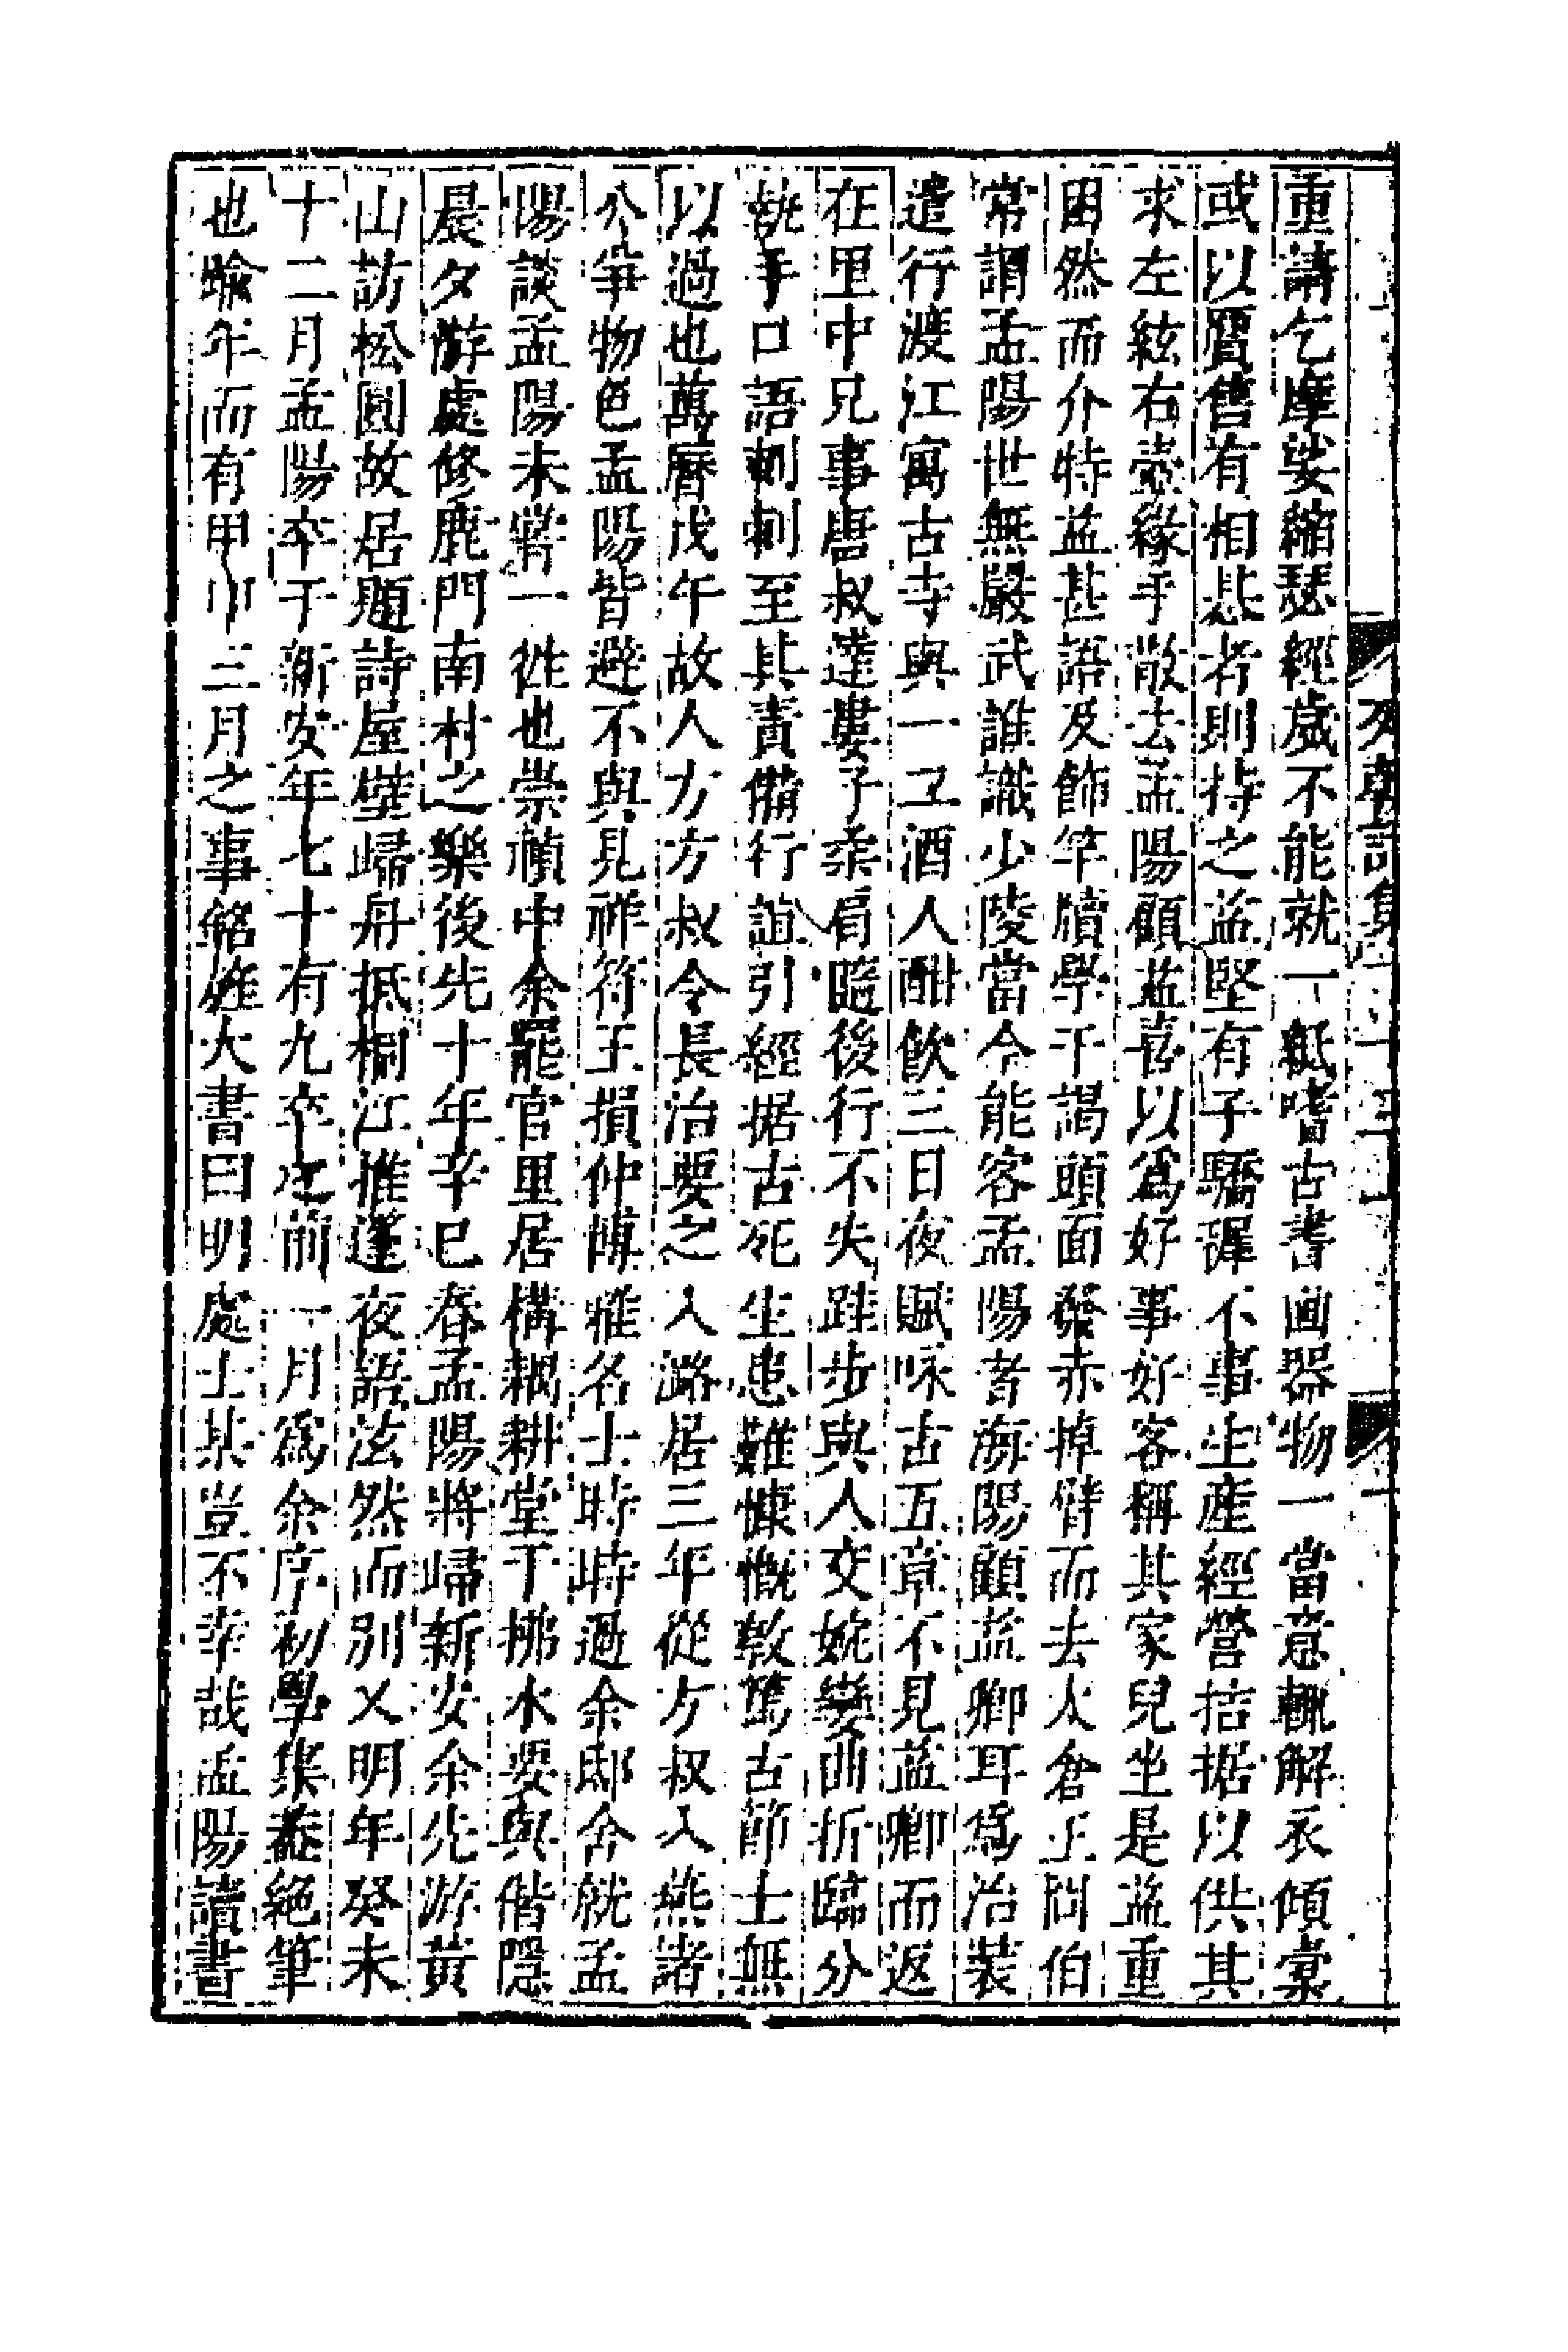 列朝詩集
重請乞摩娑縮瑟經歲不能就一紙嗜古書画器物一當意輒解衣傾橐
或以贋售有相惎者則持之益堅有子驕穉不事生產經營拮据以供其
求左絃右壺緣手散去孟陽顧益喜以爲好事好客稱其家兒坐是益重
困然而介特益甚語及飾竿牘學干謁頭面發赤掉臂而去太倉王冏伯
常謂孟陽世無嚴武誰識少陵當今能客孟陽者海陽顧益卿耳爲治裝
遣行渡江寓古寺與一二酒人酣飲三日夜賦咏古五章不見益卿而返
在里中兄事唐叔達婁子柔肩隨後行不失跬步與人交婉孌曲折臨分
執手口語刺刺至其責備行誼引經据古死生患難慷慨敦篤古節士無
以過也萬曆戊午故人方方叔令長治要之入潞居三年從方叔入燕諸
公爭物色孟陽皆避不與見祥符王損仲博雅名士時時過余邸舍就孟
陽談孟陽未嘗一往也崇禎中余罷官里居構耦耕堂于拂水要與偕隱
晨夕游處修鹿門南村之樂後先十年辛巳春孟陽將歸新安余先游黃
山訪松圓故居題詩屋壁歸舟抵桐江推蓬夜語泫然而別又明年癸未
十二月孟陽卒于新安年七十有九卒之前一月爲余序初學集蓋絕筆
也喻年而有甲申三月之事銘旌大書曰明處士某豈不幸哉孟陽讀書